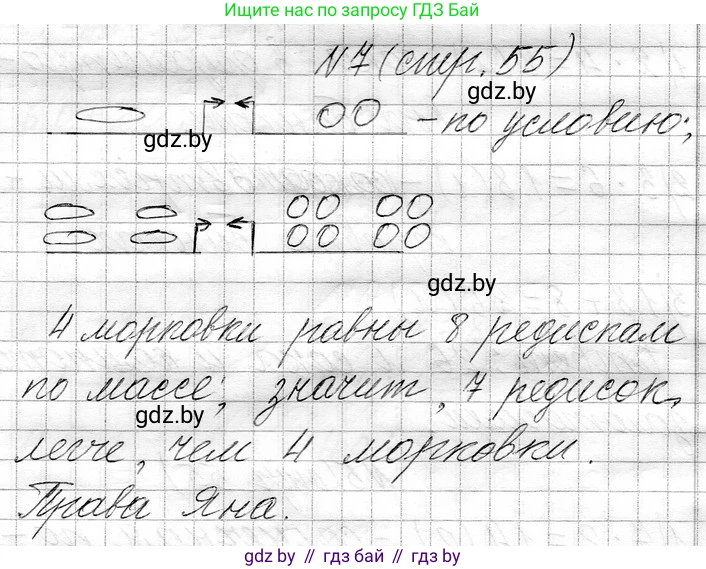 Ищите нас по запросу ГДЗ Бай
N7 (стр. 55)
gdz.by
- по условию;
gdz.by
gdz.by
4 морковки равны 8 редискам
по массе; значит, 7 редисок,
gdz.by
легче, чем 4 морковки.
Права Яна.
gdz by // гдз бай // гдз by